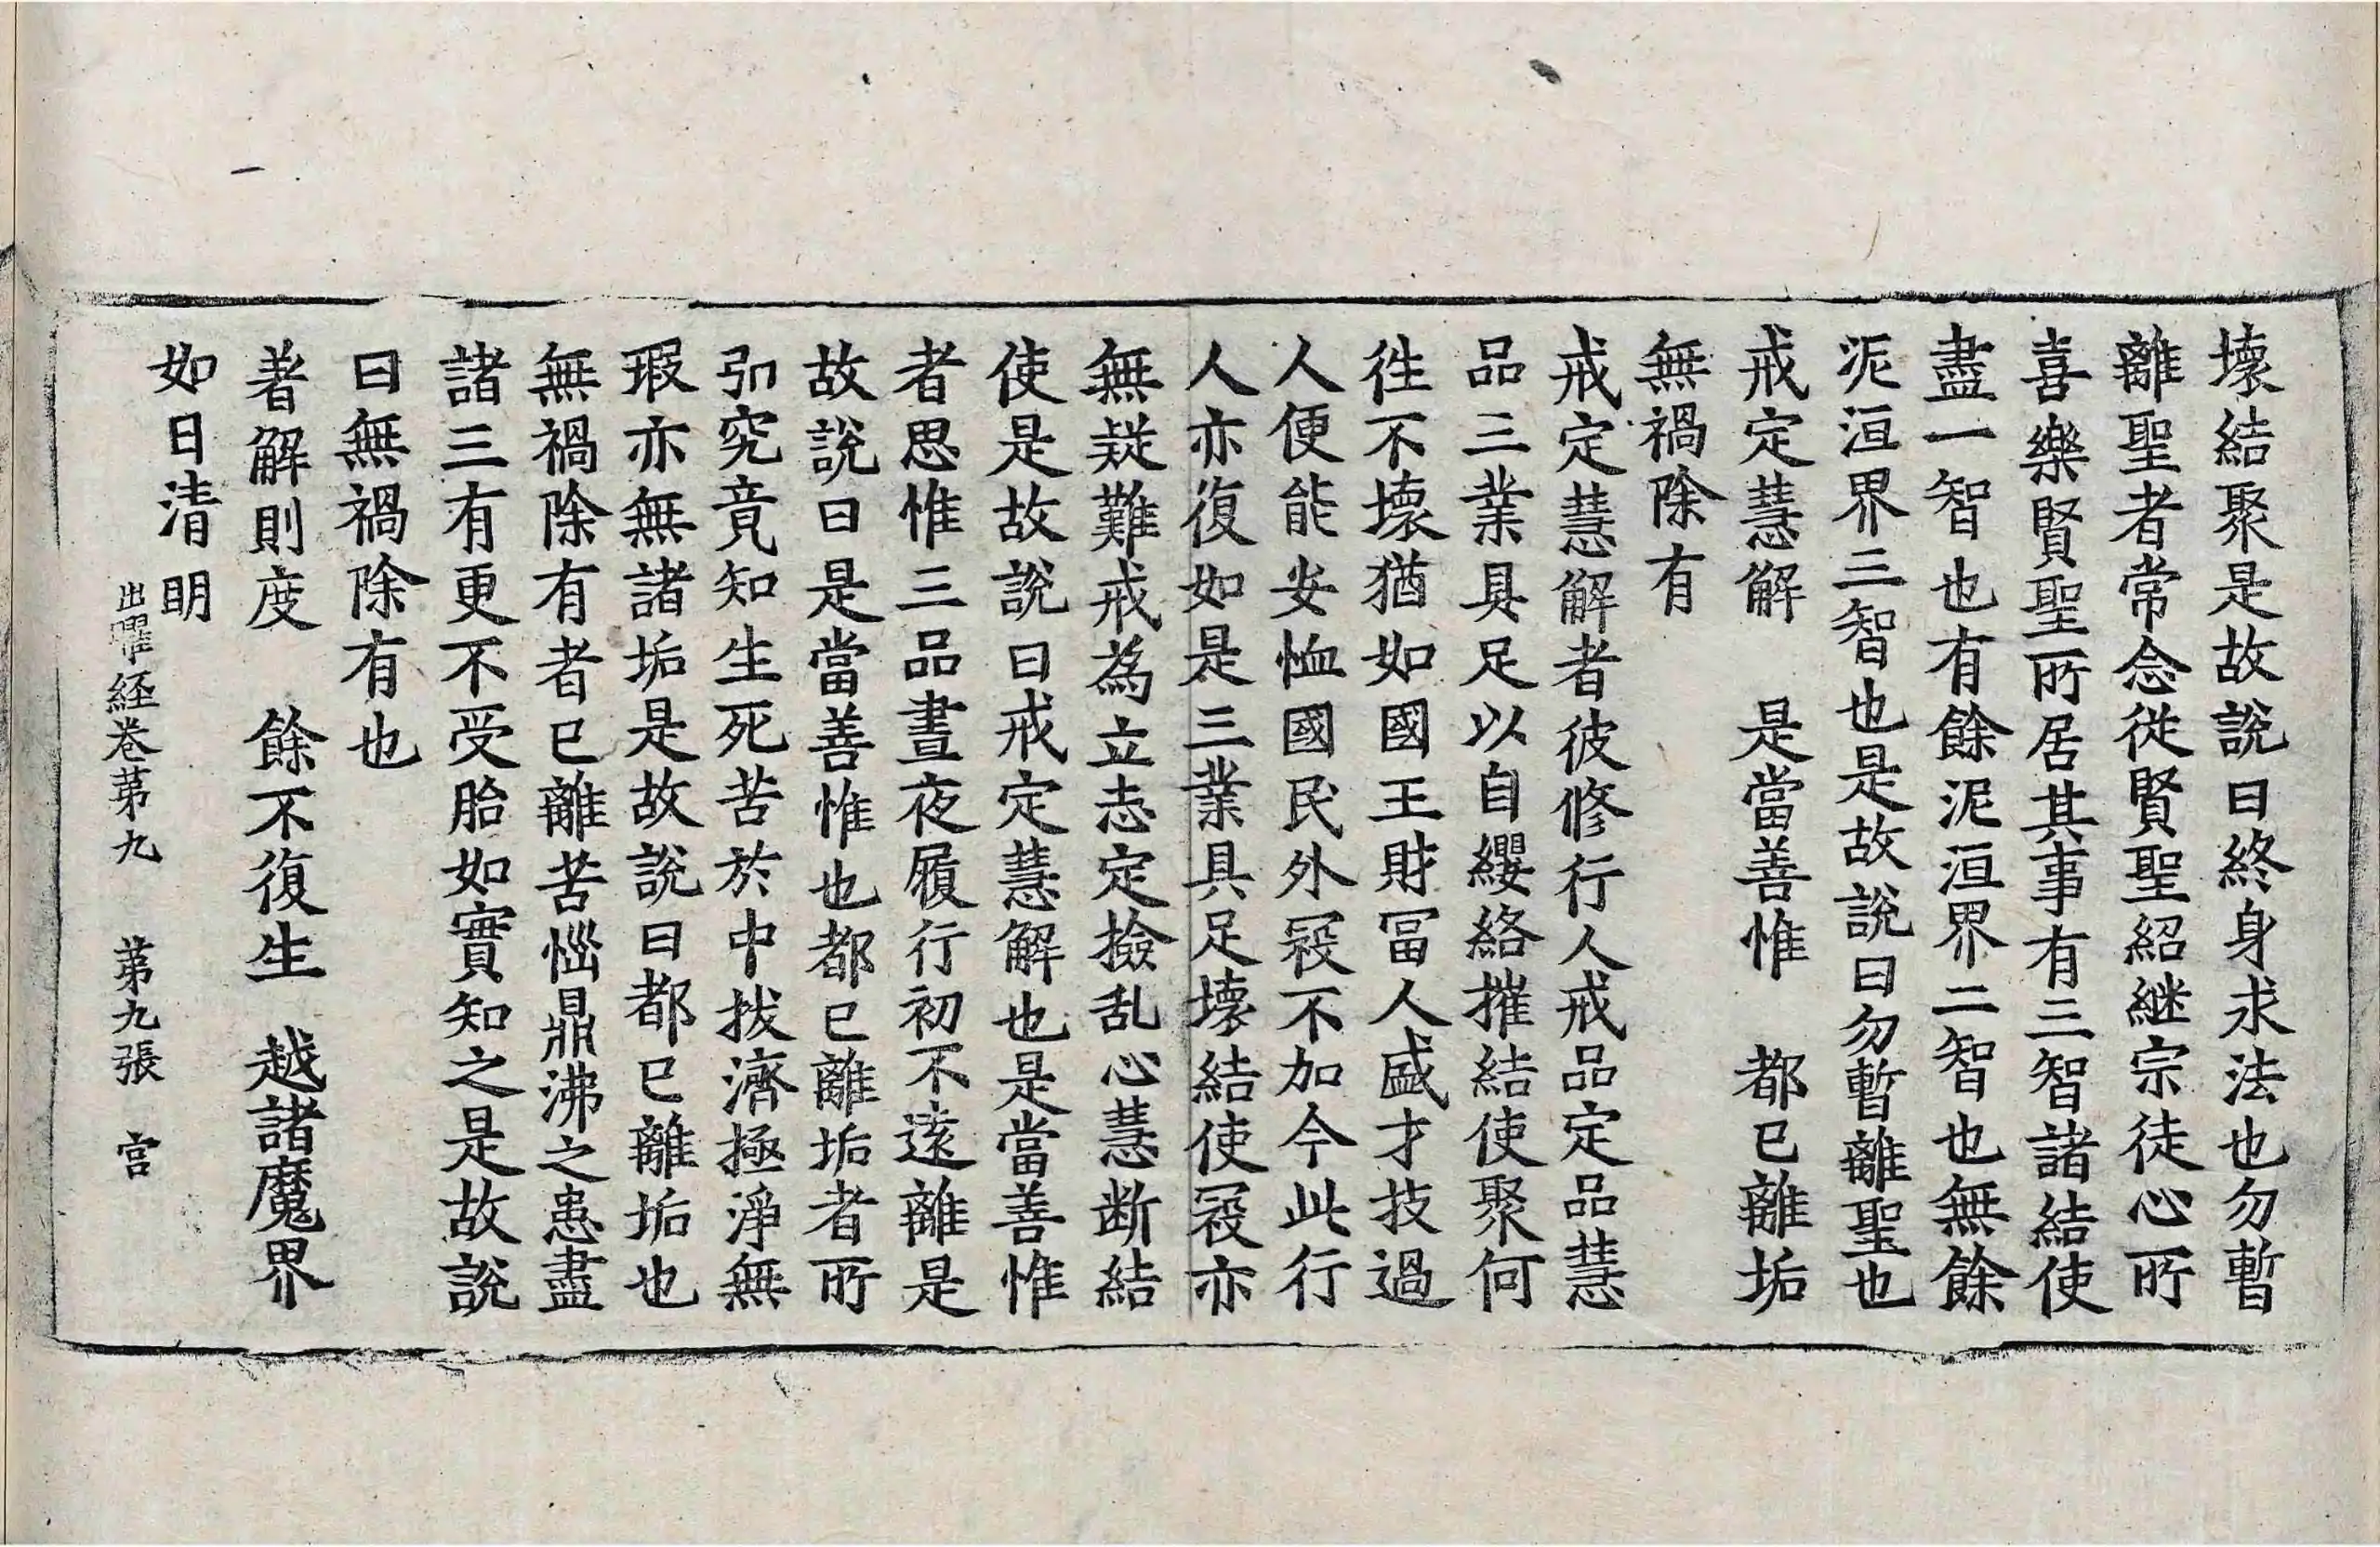 壞結聚是故說曰終身求法也勿暫
離聖者常念從賢聖紹継宗徒心所
喜樂賢聖所居其事有三智諸結使
盡一智也有餘泥洹界二智也無餘
泥洹界三智也是故說曰勿暫離聖也
戒定慧解　是當善惟　都已離垢
無禍除有
戒定慧解者彼修行人戒品定品慧
品三業具足以自纓絡摧結使聚何
徃不壞猶如國王財冨人盛才技過
人便能安恤國民外寇不加今此行
人亦復如是三業具足壞結使寇亦
無疑難戒為立志定撿乱心慧断結
使是故說曰戒定慧解也是當善惟
者思惟三品晝夜履行初不遠離是
故說曰是當善惟也都已離垢者所
引究竟知生死苦於中拔濟極淨無
瑕亦無諸垢是故說曰都已離垢也
無禍除有者已離苦惱鼎沸之患盡
諸三有更不受胎如實知之是故說
曰無禍除有也
著解則度　餘不復生　越諸魔界
如日清明
出曜経卷苐九　苐九張　宫